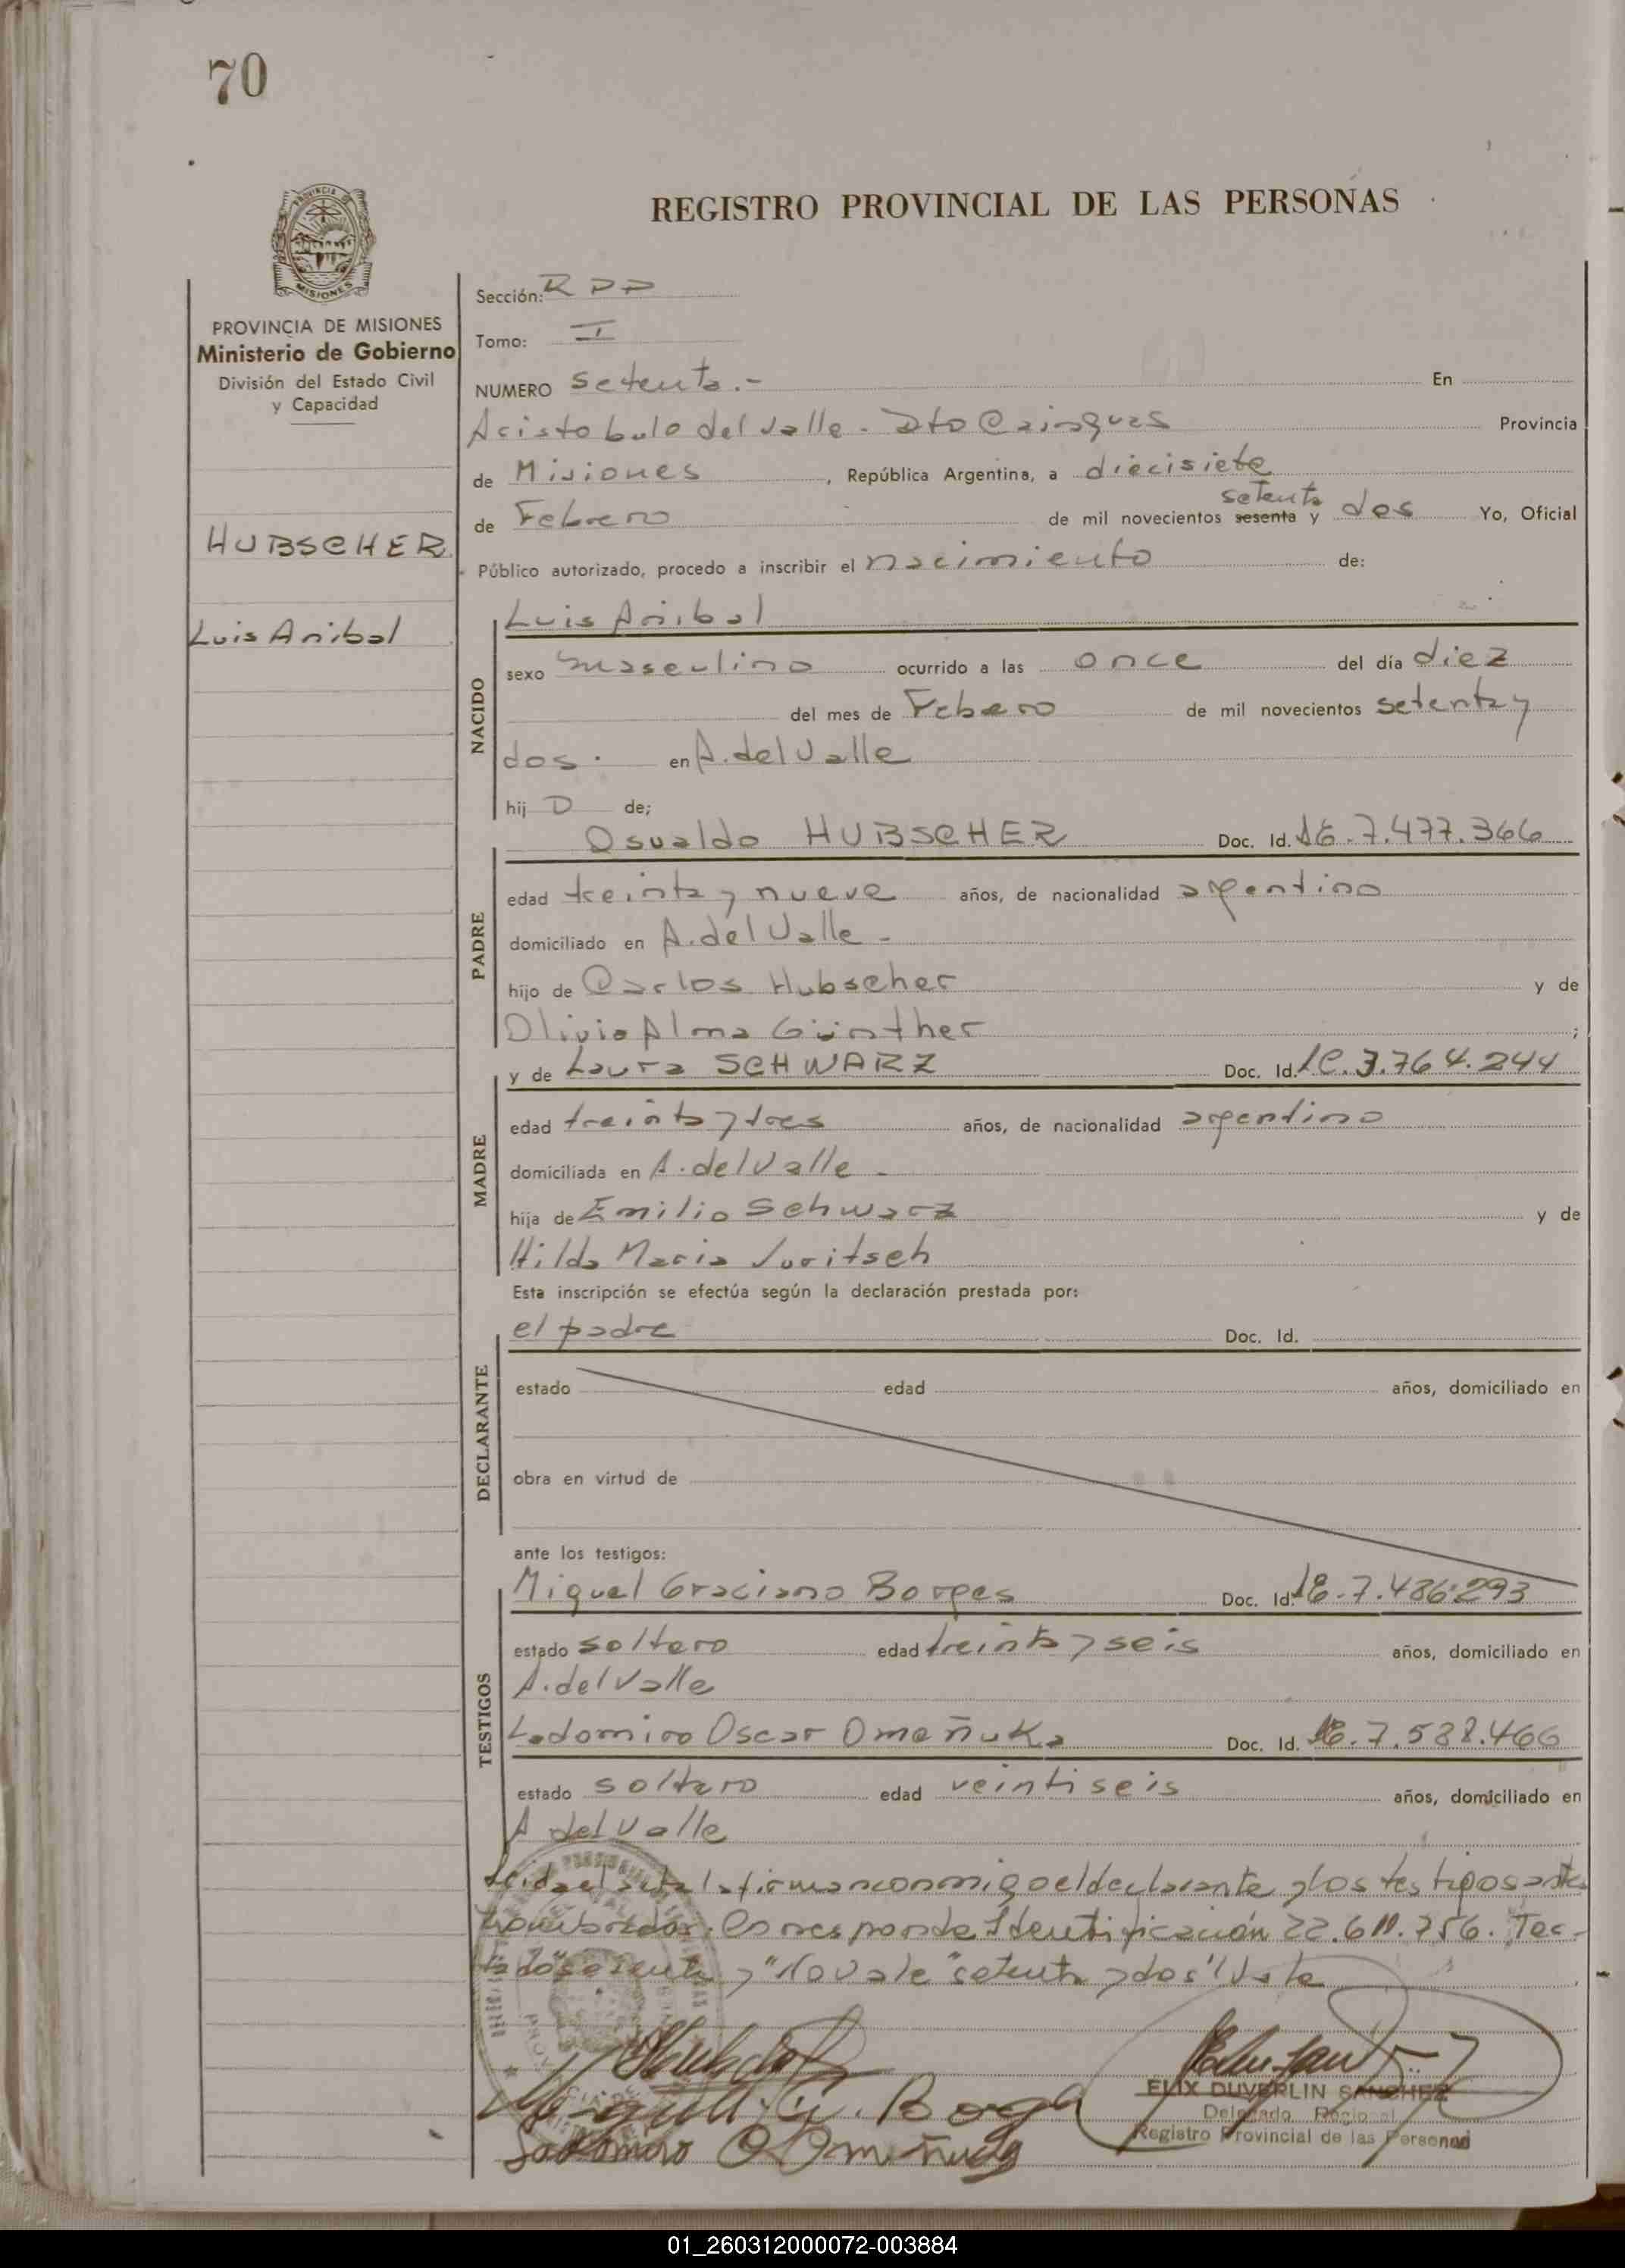 70
REGISTRO PROVINCIAL DE LAS PERSONAS
PROVINCIA DE MISIONES
Ministerio de Gobierno
División del Estado Civil
y Capacidad
HUBSCHER
Luis Anibal
Sección:
Tomo: I
NUMERO setenta.- En
Aristobulo del Valle - Dto Cainguas Provincia
de Misiones, República Argentina, a diecisiete
setenta
de Febrero de mil novecientos sesenta y dos Yo, Oficial
Público autorizado, procedo a inscribir el nacimiento de:
NACIDO
Luis Anibal
sexo masculino ocurrido a las once del día diez
del mes de Febrero de mil novecientos setenta y
dos. en A. del Valle
hij o de;
PADRE
Osvaldo HUBSCHER Doc. Id. 7.477.366
edad treinta y nueve años, de nacionalidad argentino
domiciliado en A. del Valle -
hijo de Carlos Hubscher y de
Olivia Alma Günther ;
MADRE
y de Laura SCHWARZ Doc. Id. 3.764.244
edad treinta y tres años, de nacionalidad argentina
domiciliada en A. del Valle -
hija de Emilio Schwarz y de
Hilda Maria Juritsch
Esta inscripción se efectúa según la declaración prestada por:
DECLARANTE
el padre Doc. Id.
estado edad años, domiciliado en
obra en virtud de
ante los testigos:
TESTIGOS
Miguel Graciano Borges Doc. Id. 7.486.293
estado soltero edad treinta y seis años, domiciliado en
A. del Valle
Ladomiro Oscar Omeñuka Doc. Id. 7.588.466
estado soltero edad veintiseis años, domiciliado en
A del Valle
Leida el acta la firman conmigo el declarante y los testigos ante
nombrados. Corresponde Identificación 22.611.756. Tes-
tado "sesenta y" No vale "setenta y dos" Vale
ELIX DUVERLIN SANCHEZ
Delegado Regional
Registro Provincial de las Personas
01_260312000072-003884